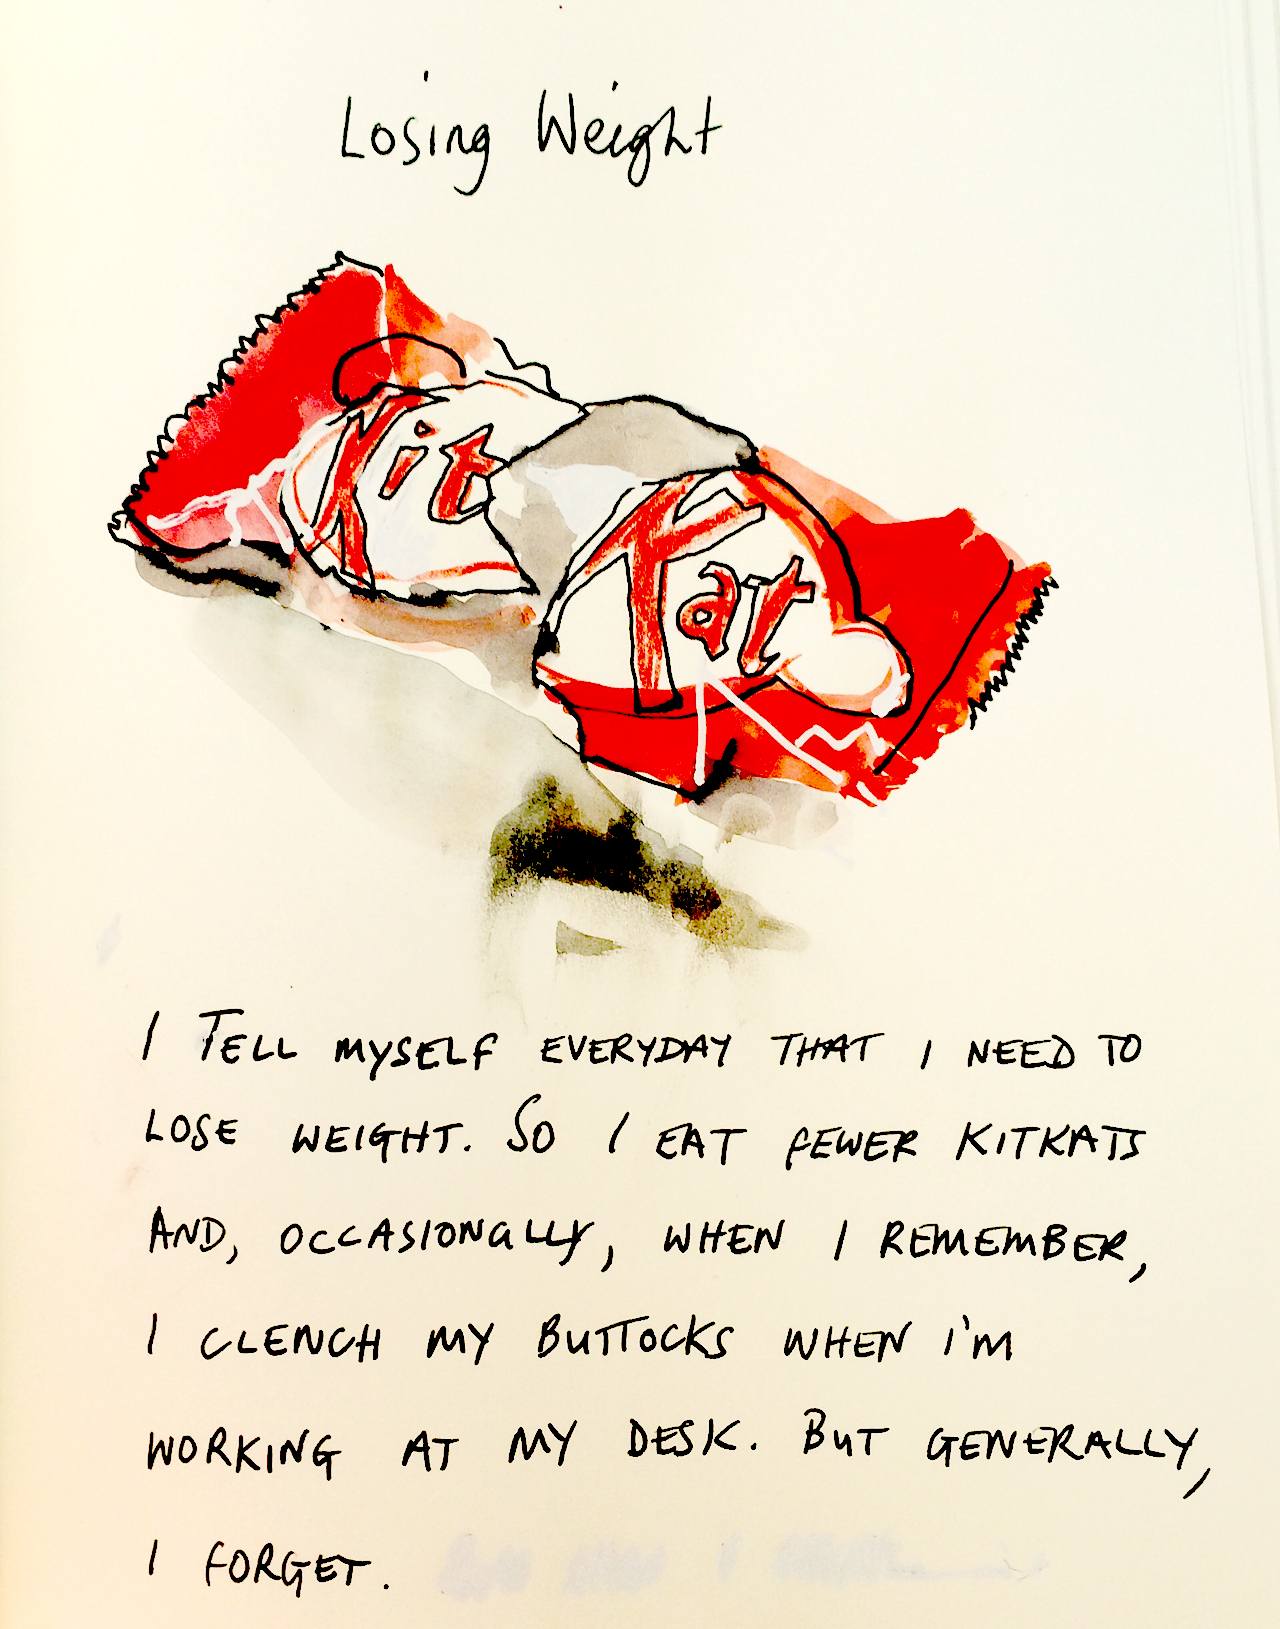 Losing Weight
Kit
Kat
I TELL MYSELF EVERYDAY THAT I NEED TO
LOSE WEIGHT. SO I EAT FEWER KITKATS
AND, OCCASIONALLY, WHEN I REMEMBER,
I CLENCH MY BUTTOCKS WHEN I'M
WORKING AT MY DESK. BUT GENERALLY,
I FORGET.